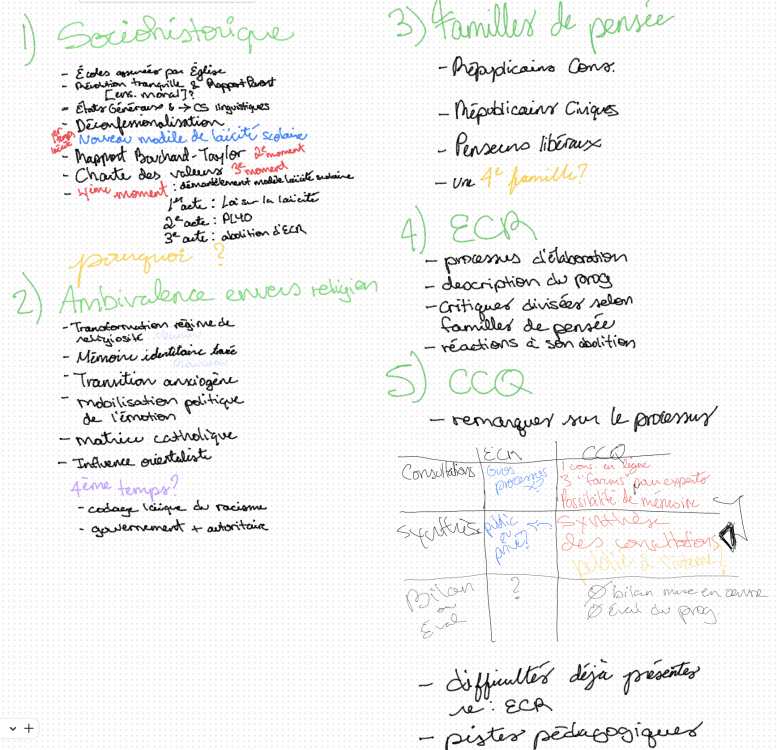 1) Sociohistorique
- Écoles assurées par Église
- Révolution tranquille & Rapport Parent
[ens. moral]?
- États Généraux & → CS linguistiques
- Déconfessionalisation
1er temps laïcité
- Nouveau modèle de laïcité scolaire
- Rapport Bouchard-Taylor 2e moment
- Charte des valeurs 3e moment
- 4ième moment : démantèlement modèle laïcité scolaire
1er acte : Loi sur la laïcité
2e acte : PL40
3e acte : abolition d'ECR
pourquoi ?
2) Ambivalence envers religion
- Transformation régime de
religiosité
- Mémoire identitaire
- Transition anxiogène
- mobilisation politique
de l'émotion
- matrice catholique
- Influence orientaliste
4ème temps?
- codage laïque du racisme
- gouvernement + autoritaire
3) Familles de pensée
4
- Républicains Cons.
- Républicains Civiques
- Penseurs libéraux
- une 4e famille?
4) ECR
- processus d'élaboration
- description du prog
- Critiques divisées selon
familles de pensée
- réactions à son abolition
5) CCQ
- remarques sur le processus
ECR CCQ
Consultations Gros processus ?? 1 cons en ligne
3 "forums" pour experts
Possibilité de mémoire
Synthèses public ou privé? Synthèse
des consultations
public à l'interne?
Bilan ou Éval ? Ø bilan mise en œuvre
Ø Éval du prog
- difficultés déjà présentes
re: ECR
- pistes pédagogiques